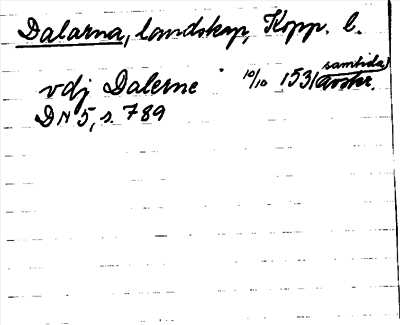 Dalarna, landskap, Kopp. l.
vdj Dalerne 10/10 1531 samtida avskr.
DN 5, s. 789